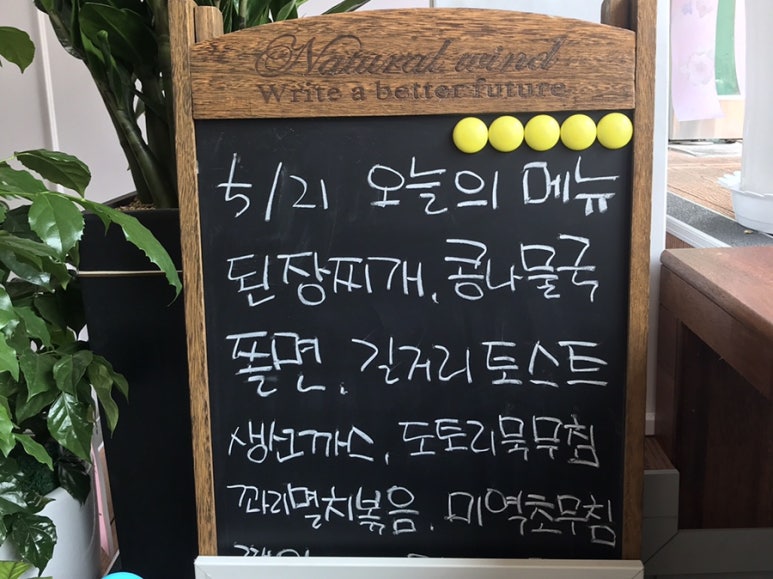 Natural wind
Write a better future
5/21 오늘의 메뉴
된장찌개, 콩나물국
쫄면, 길거리토스트
생선까스, 도토리묵무침
꽈리멸치볶음, 미역초무침